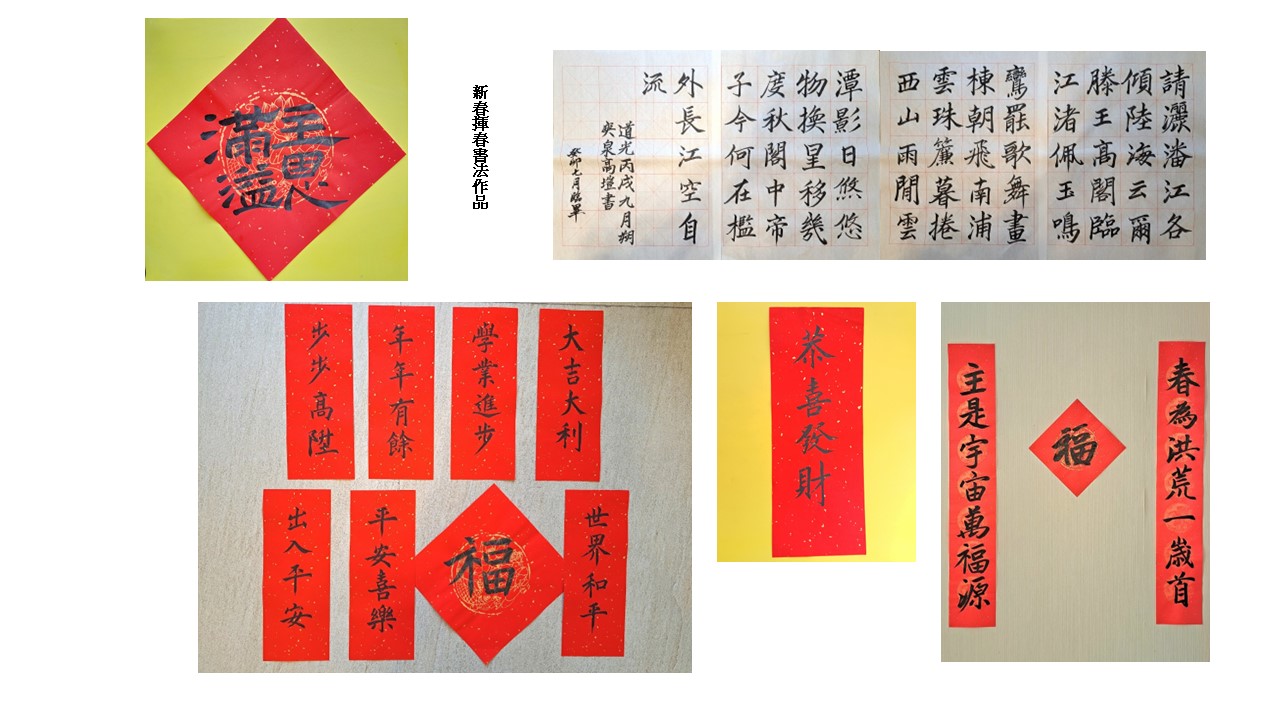 主恩
滿溢
新春揮春書法作品
請灑潘江各
傾陸海云爾
滕王高閣臨
江渚佩玉鳴
鸞罷歌舞畫
棟朝飛南浦
雲珠簾暮捲
西山雨閒雲
潭影日悠悠
物換星移幾
度秋閣中帝
子今何在檻
外長江空自
流
道光丙戌九月朔
爽泉高塏書
癸卯七月臨畢
大吉大利
學業進步
年年有餘
步步高陞
世界和平
福
平安喜樂
出入平安
恭喜發財
春為洪荒一歲首
福
主是宇宙萬福源